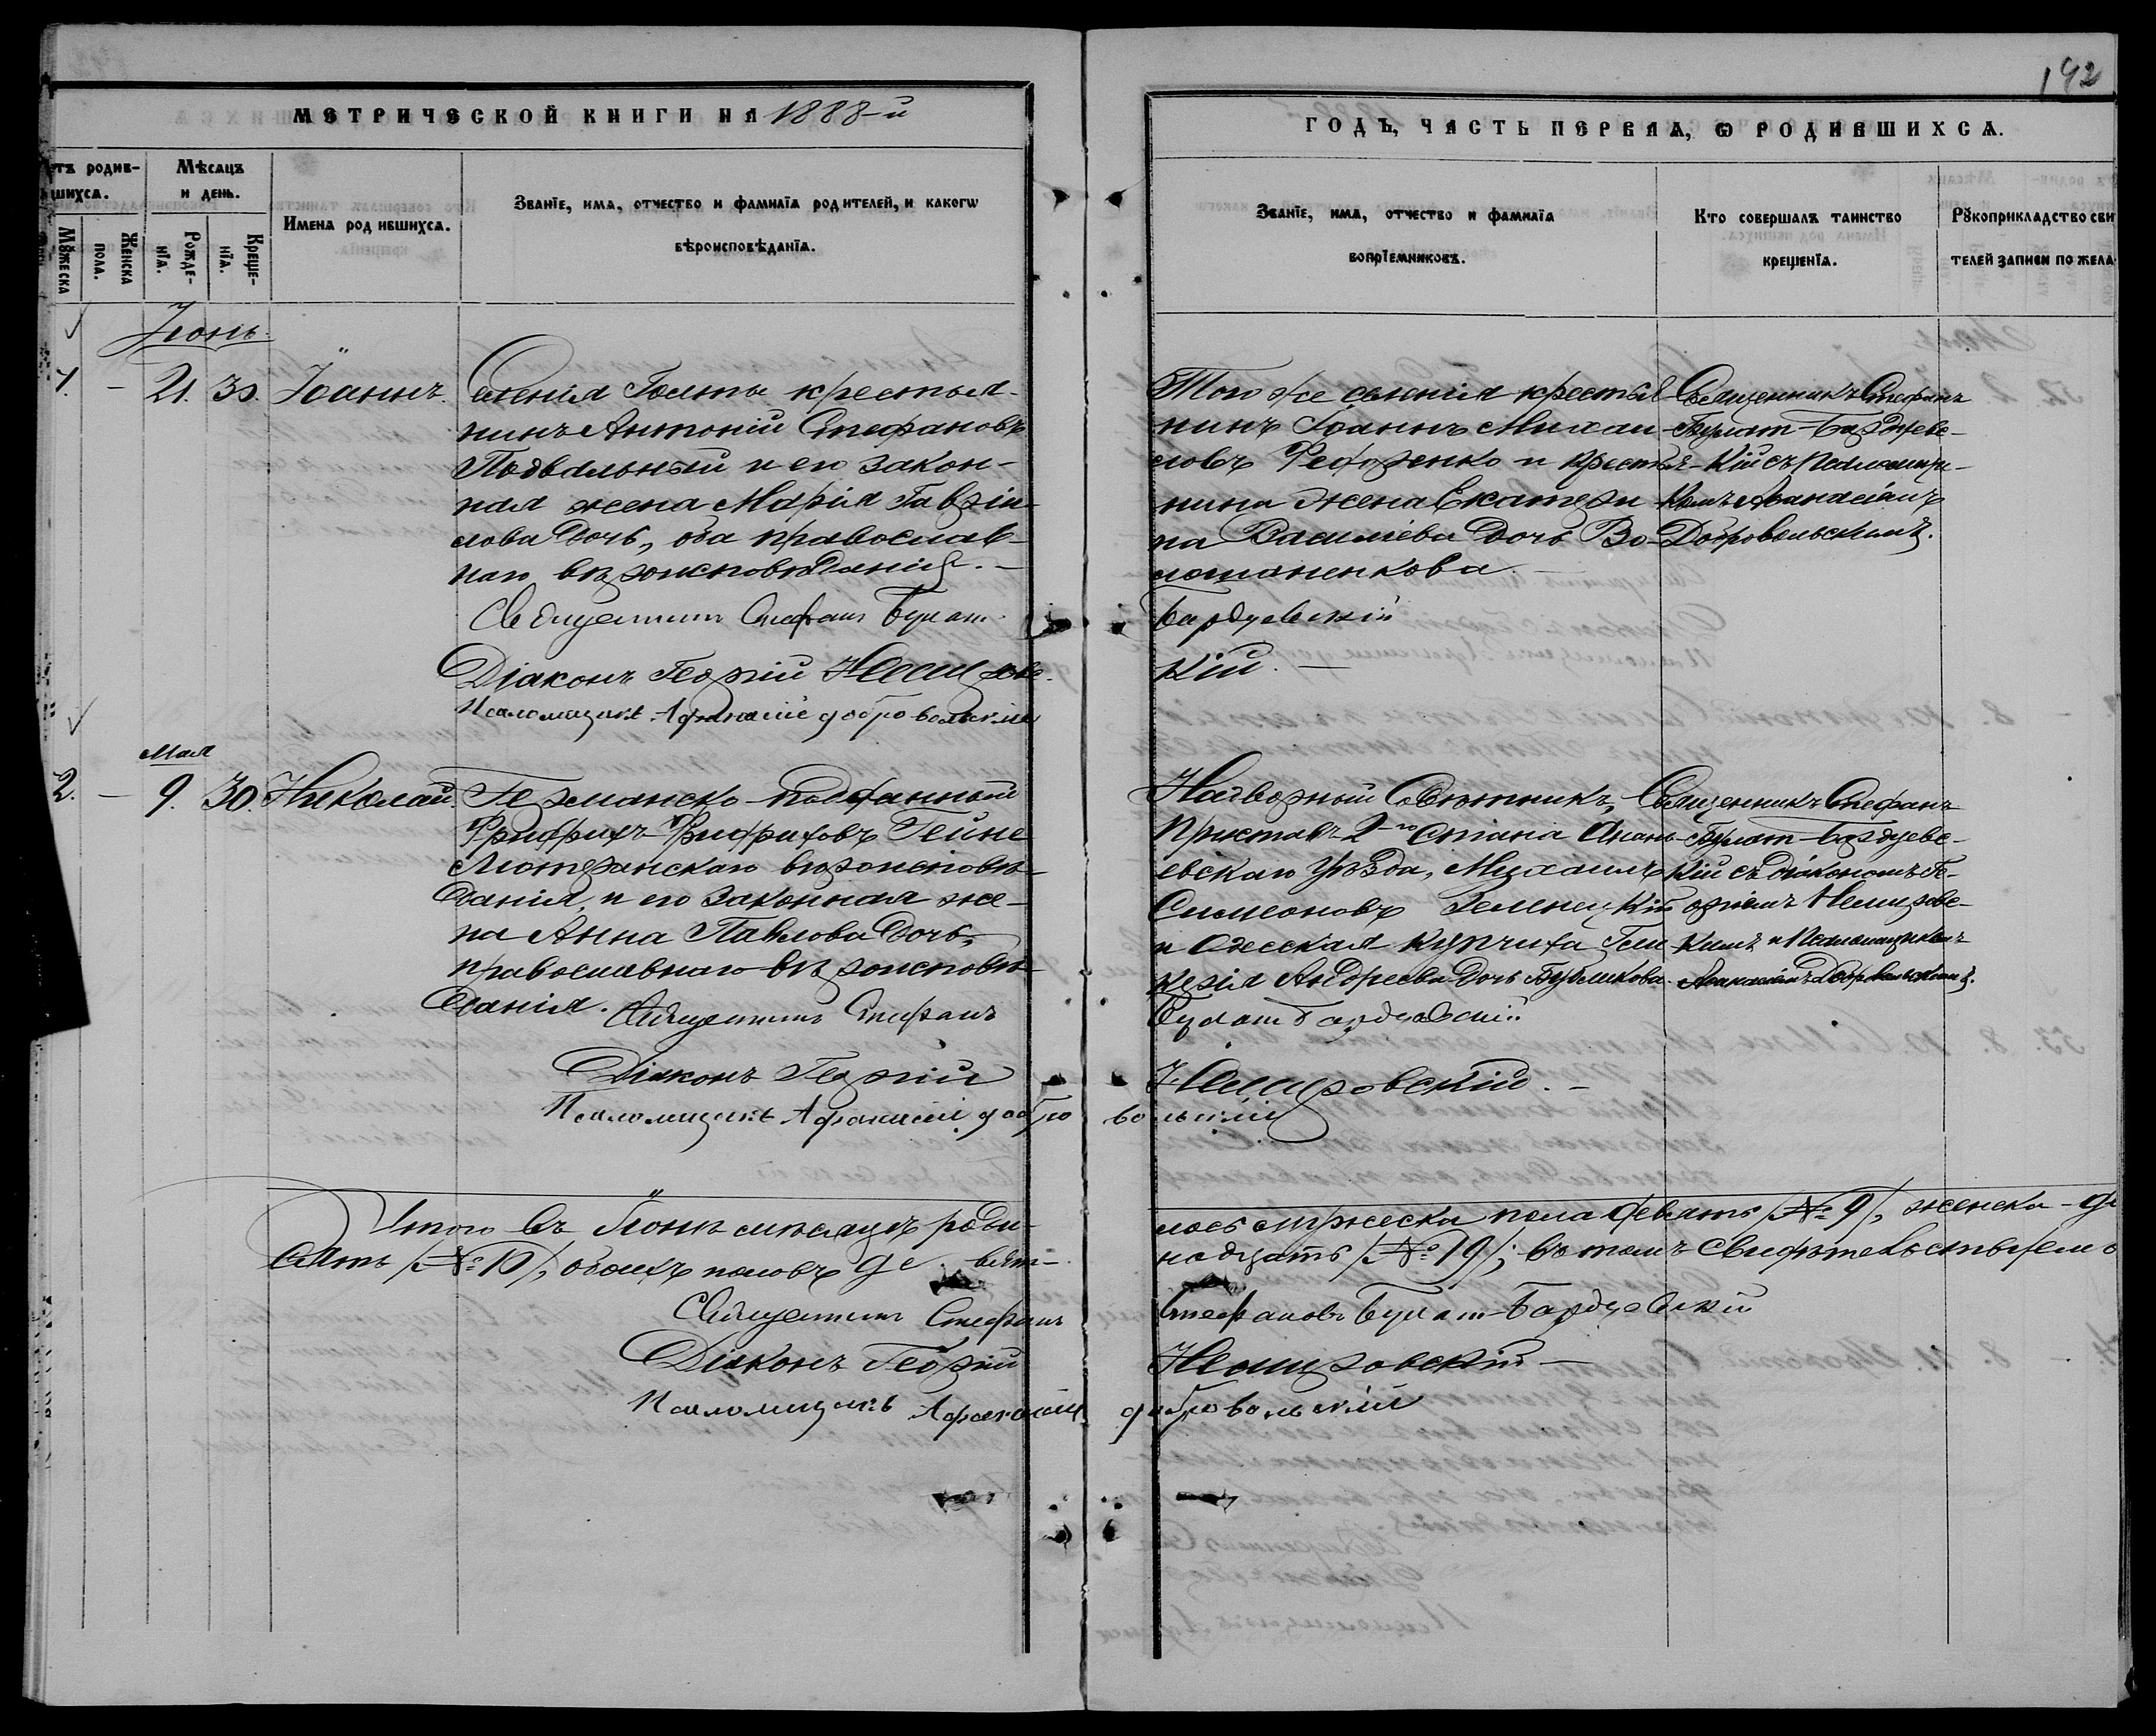 192
МЕТРИЧЕСКОЙ КНИГИ НА 1888-й
ГОДЪ, ЧАСТЬ ПЕРВАЯ, Ѡ РОДИВШИХСѦ.
етъ родив-
шихсѧ.
Мѣсѧцъ
и день.
Имена родившихсѧ.
Званїе, имѧ, отчество и фамилїѧ родителей, и какогѡ
вѣроисповѣданїѧ.
Мꙋжеска
Женска
пола.
Рожде-
нїѧ.
Креще-
нїѧ.
Званїе, имѧ, отчество и фамилїѧ
воприемниковъ.
Кто совершалъ таинство
крещенїѧ.
Рꙋкоприкладство сви
телей записи по жела
Іюнь.
21. 30. Іоаннъ.
селенія Голты крестья-
нинъ Антоній Стефановъ
Подвальный и его закон-
ная жена Марія Гавріи-
лова дочь, оба православ-
наго вѣроисповѣданія. —
Священникъ Стефанъ Булат-
Діаконъ Георгій Немировс-
Псаломщикъ Афанасий добровольский
Того же селенія крестья-
нинъ Іоаннъ Михаи-
ловъ Федоренко и крестья-
нина жена Екатери-
на Васильева дочь Во-
лошаненкова. —
Бардуевскій
кій. —
Священникъ Стефанъ
Булат-Бардуевс-
кій съ Псаломщи-
комъ Афанасіемъ
Добровольскимъ.
Мая
2. — 9. 30. Николай.
Германско-подданный
Фридрихъ Фридриховъ Гейне
Лютеранскаго вѣроисповѣ-
данія, и его законная же-
на Анна Павлова дочь,
православнаго вѣроисповѣ-
данія.
Священникъ Стефанъ
Діаконъ Георгій
Псаломщикъ Афанасий добро
Надворный Совѣтникъ,
Приставъ 2-го Стана Анань-
евскаго уѣзда, Михаилъ
Симеоновъ Зелинскій
и Одесская купчиха Гли-
керія Андреева дочь Бубликова.
Булат Бардуевскій
Немировскій. —
вольский
Священникъ Стефанъ
Булат-Бардуевс-
кій съ Діакономъ Ге-
оргіемъ Немировс-
кимъ и Псаломщикомъ
Афанасіемъ Добровольскимъ.
Итого въ Іюнѣ мѣсяцѣ роди-
лось мужеска пола девять /№ 9/, женска - де
сять /№ 10/, обоихъ половъ де вят-
надцать /№ 19/; въ томъ свидѣтельствуемъ
Священникъ Стефанъ
Стефановъ Булат-Бардуевскій
Діаконъ Георгій
Немировскій —
Псаломщикъ Афанасий
добровольский